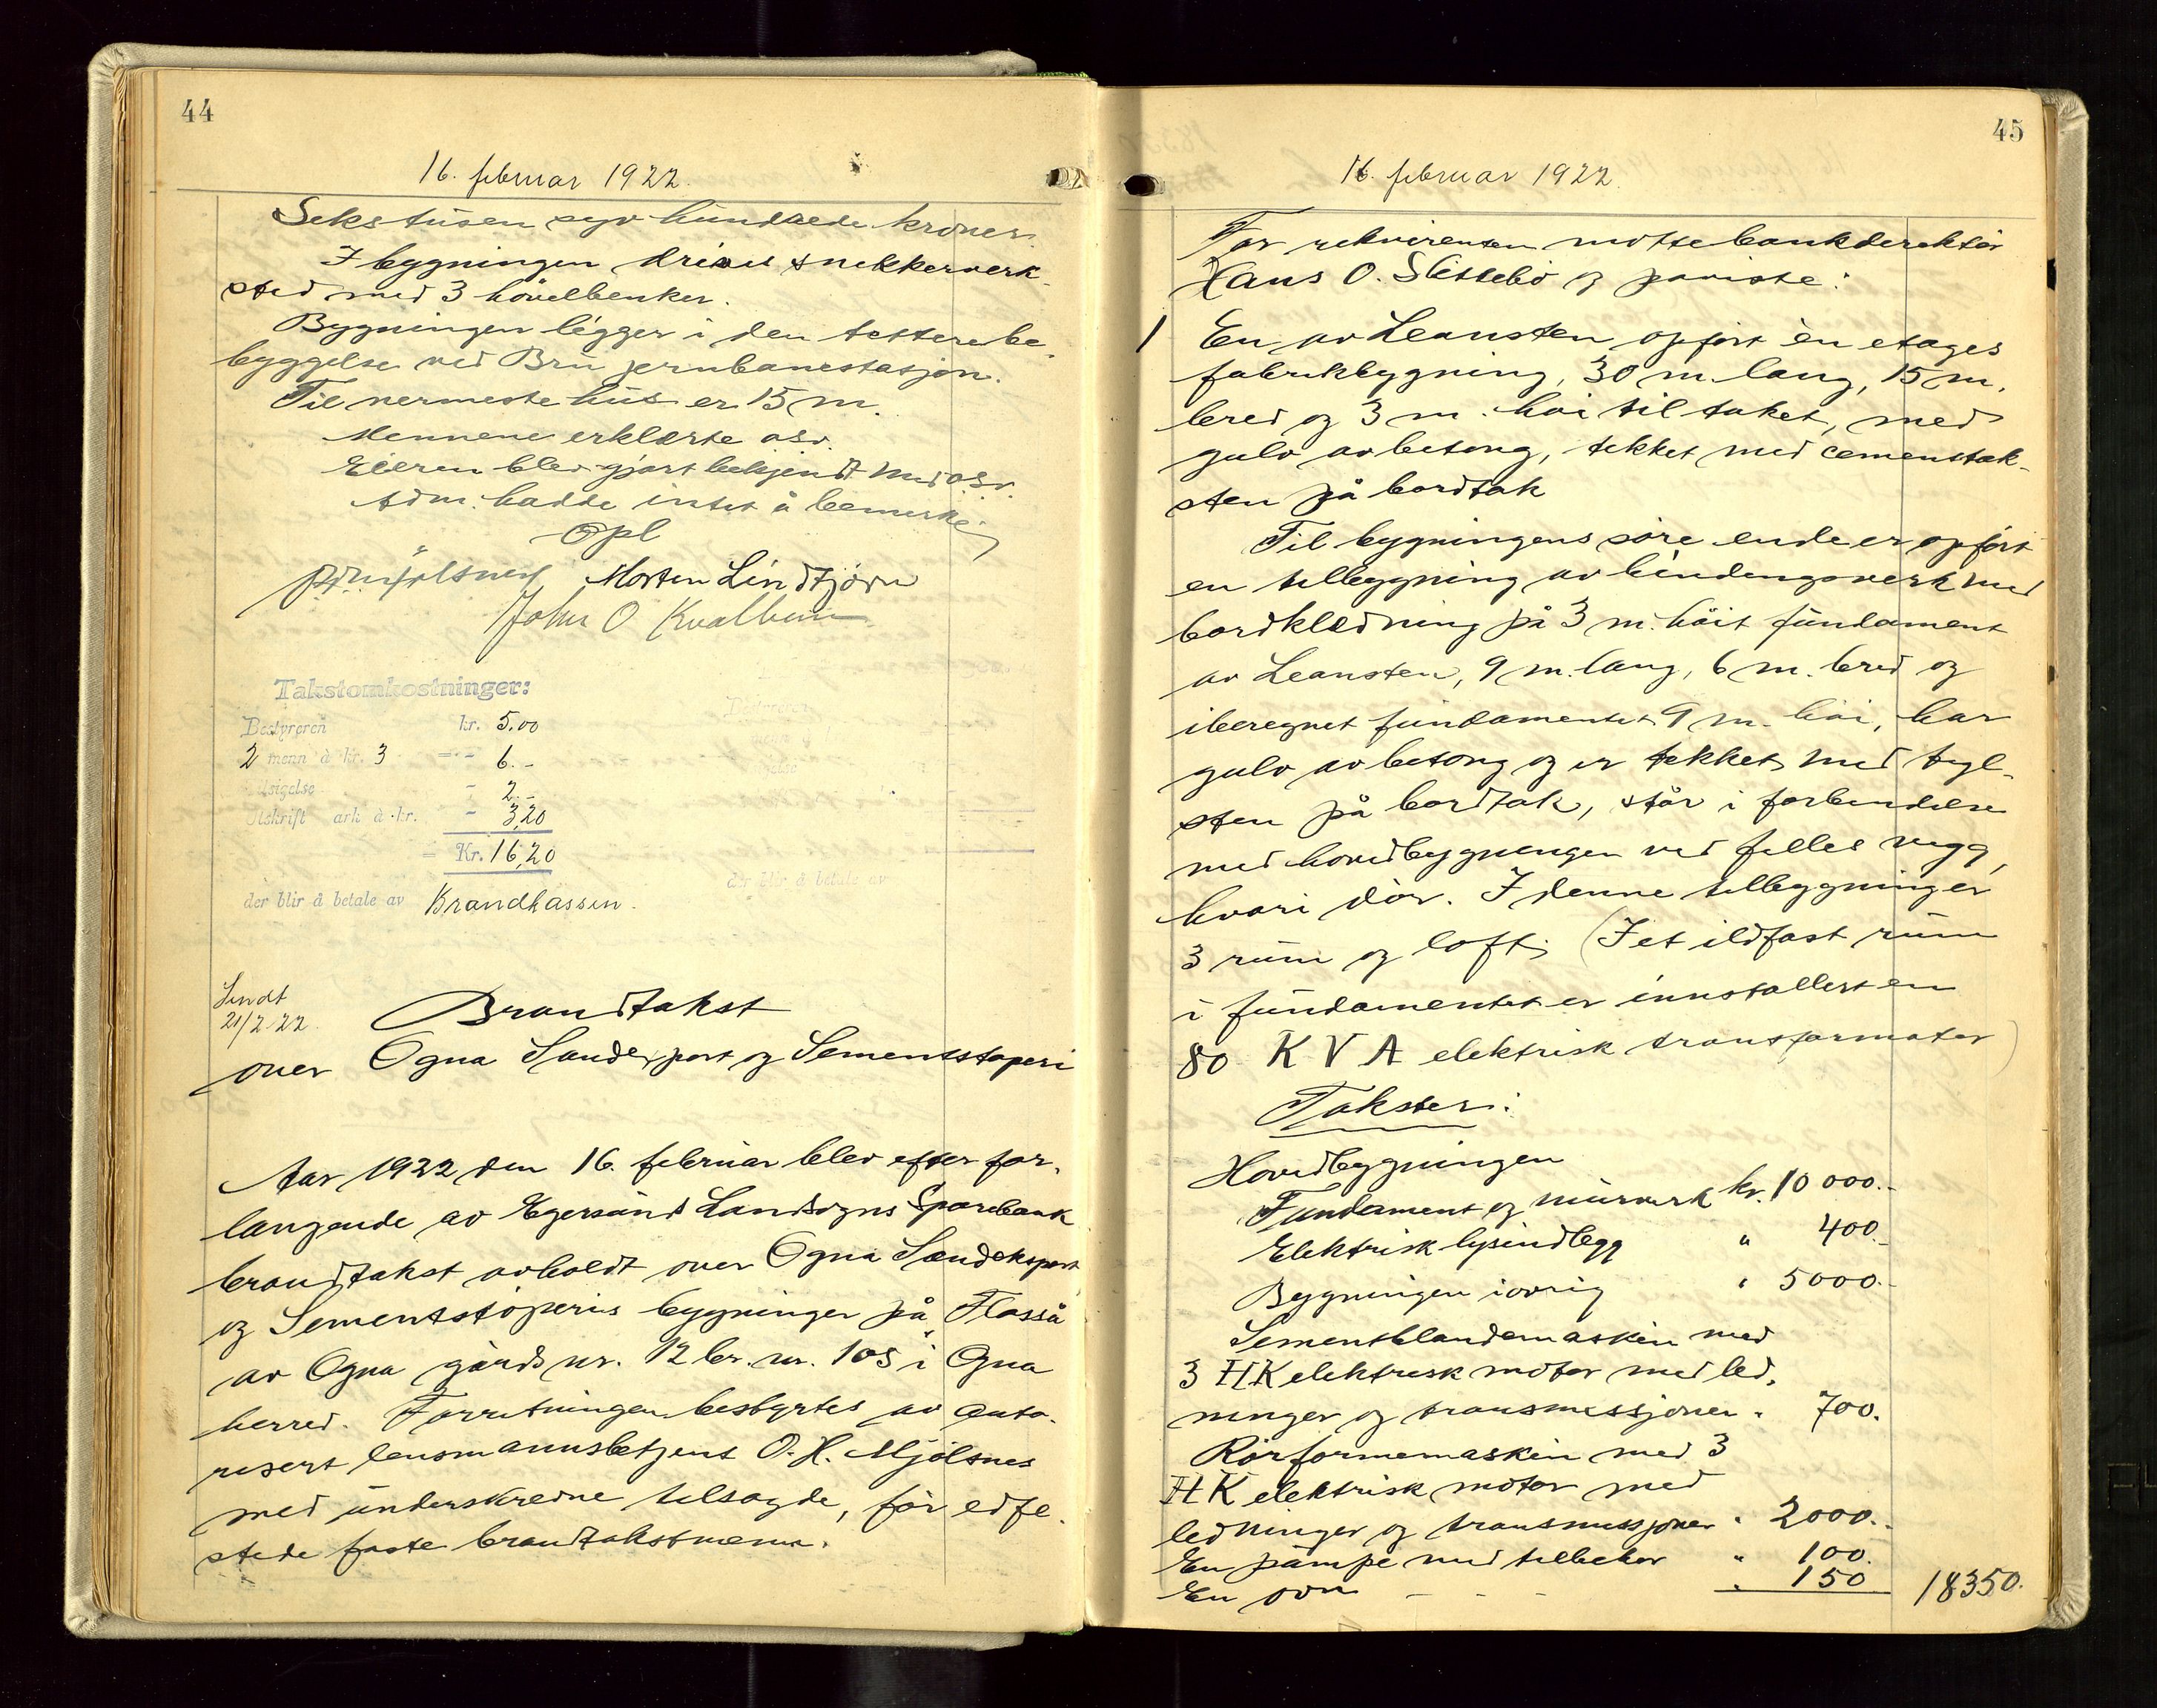 44
16. februar 1922.
Sekstusen syv hundrede kroner.
I bygningen drives snekkerverk-
sted med 3 hövelbenker.
Bygningen ligger i den tettere be-
byggelse ved Bru jernbanestasjon.
Til nermeste hus er 15 m.
Mennene erklærte osv.
Eieren blev gjort bekjendt med osv.
Adm. hadde intet å bemerke.
Opl
Morten Lindtjörn
John O Kvalbein
Takstomkostninger:
Bestyreren kr. 5.00
2 menn à kr. 3 = - 6.-
lsigelse - 2.-
tskrift ark à kr. - 3,20
= Kr. 16,20
der blir å betale av Brandkassen.
Sendt
21/2 22.
Brandtakst
over Ogna Sandexport og Sementstøperi
Aar 1922 den 16. februar blev efter for-
langende av Egersund Landsogns Sparebank
brandtakst avholdt over Ogna Sandeksport
og Sementstöperis bygninger på Flasså
av Ogna gårds nr. 12 br. nr. 105 i Ogna
herred. Forretningen bestyrtes av auto-
risert lensmannsbetjent O. H. Mjölsnes
med underskrevne tilsagde, för edfe-
stede faste brandtakstmenn.
45
16. februar 1922.
For rekvirenten mötte bankdirektör
Hans O. Slettebö og paviste:
1 En av Leansten opfört én etages
fabrikbygning, 30 m. lang, 15 m.
bred og 3 m. höi til taket, med
gulv av betong, tekket med cementtak-
sten på bordtak
Til bygningens söre ende er opfört
en tilbygning av bindingsverk med
bordklædning på 3 m. höit fundament
av Leansten, 9 m. lang, 6 m. bred og
iberegnet fundamentet 9 m. höi, har
gulv av betong og er tekket med tegl-
sten på bordtak, står i forbindelse
med hovedbygningen ved felles vegg,
hvori dör. I denne tilbygning er
3 rum og loft. (I et ildfast rum
i fundamentet er innstallert en
80 K V A elektrisk transformator)
Takster:
Hovedbygningen
Fundament og murverk kr. 10 000.-
Elektrisk lysindlegg " 400.-
Bygningen iövrig " 5000.-
Sementblandemaskin med
3 HK elektrisk motor med led-
ninger og transmissjoner " 700.
Rörformemaskin med 3
HK elektrisk motor med
ledninger og transmissjoner " 2000.-
En pumpe med tilbehör " 100.
En ovn - - - " 150 18350.